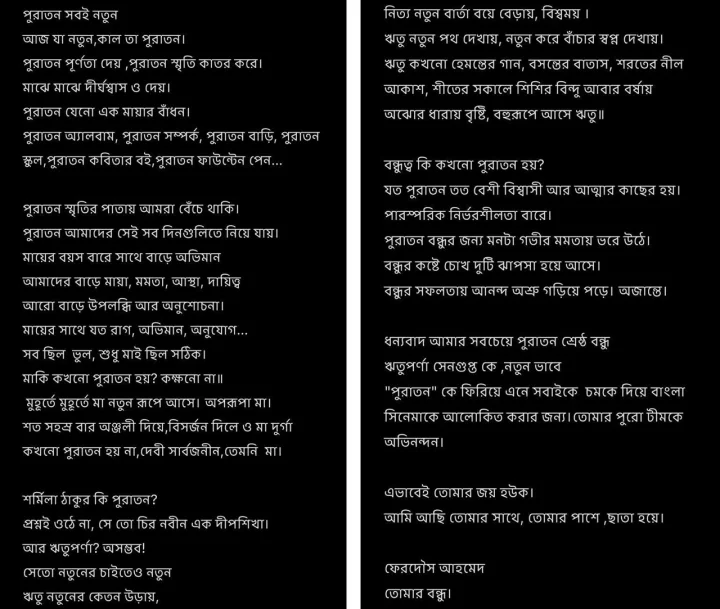 পুরাতন সবই নতুন
আজ যা নতুন,কাল তা পুরাতন।
পুরাতন পূর্ণতা দেয় ,পুরাতন স্মৃতি কাতর করে।
মাঝে মাঝে দীর্ঘশ্বাস ও দেয়।
পুরাতন যেনো এক মায়ার বাঁধন।
পুরাতন অ্যালবাম, পুরাতন সম্পর্ক, পুরাতন বাড়ি, পুরাতন
স্কুল,পুরাতন কবিতার বই,পুরাতন ফাউন্টেন পেন...
পুরাতন স্মৃতির পাতায় আমরা বেঁচে থাকি।
পুরাতন আমাদের সেই সব দিনগুলিতে নিয়ে যায়।
মায়ের বয়স বারে সাথে বাড়ে অভিমান
আমাদের বাড়ে মায়া, মমতা, আস্থা, দায়িত্ব
আরো বাড়ে উপলব্ধি আর অনুশোচনা।
মায়ের সাথে যত রাগ, অভিমান, অনুযোগ...
সব ছিল ভুল, শুধু মাই ছিল সঠিক।
মাকি কখনো পুরাতন হয়? কক্ষনো না॥
মুহূর্তে মুহূর্তে মা নতুন রূপে আসে। অপরূপা মা।
শত সহস্র বার অঞ্জলী দিয়ে,বিসর্জন দিলে ও মা দুর্গা
কখনো পুরাতন হয় না,দেবী সার্বজনীন,তেমনি মা।
শর্মিলা ঠাকুর কি পুরাতন?
প্রশ্নই ওঠে না, সে তো চির নবীন এক দীপশিখা।
আর ঋতুপর্ণা? অসম্ভব!
সেতো নতুনের চাইতেও নতুন
ঋতু নতুনের কেতন উড়ায়,
নিত্য নতুন বার্তা বয়ে বেড়ায়, বিশ্বময় ।
ঋতু নতুন পথ দেখায়, নতুন করে বাঁচার স্বপ্ন দেখায়।
ঋতু কখনো হেমন্তের গান, বসন্তের বাতাস, শরতের নীল
আকাশ, শীতের সকালে শিশির বিন্দু আবার বর্ষায়
অঝোর ধারায় বৃষ্টি, বহুরূপে আসে ঋতু॥
বন্ধুত্ব কি কখনো পুরাতন হয়?
যত পুরাতন তত বেশী বিশ্বাসী আর আত্মার কাছের হয়।
পারস্পরিক নির্ভরশীলতা বারে।
পুরাতন বন্ধুর জন্য মনটা গভীর মমতায় ভরে উঠে।
বন্ধুর কষ্টে চোখ দুটি ঝাপসা হয়ে আসে।
বন্ধুর সফলতায় আনন্দ অশ্রু গড়িয়ে পড়ে। অজান্তে।
ধন্যবাদ আমার সবচেয়ে পুরাতন শ্রেষ্ঠ বন্ধু
ঋতুপর্ণা সেনগুপ্ত কে ,নতুন ভাবে
"পুরাতন" কে ফিরিয়ে এনে সবাইকে চমকে দিয়ে বাংলা
সিনেমাকে আলোকিত করার জন্য।তোমার পুরো টীমকে
অভিনন্দন।
এভাবেই তোমার জয় হউক।
আমি আছি তোমার সাথে, তোমার পাশে ,ছাতা হয়ে।
ফেরদৌস আহমেদ
তোমার বন্ধু।